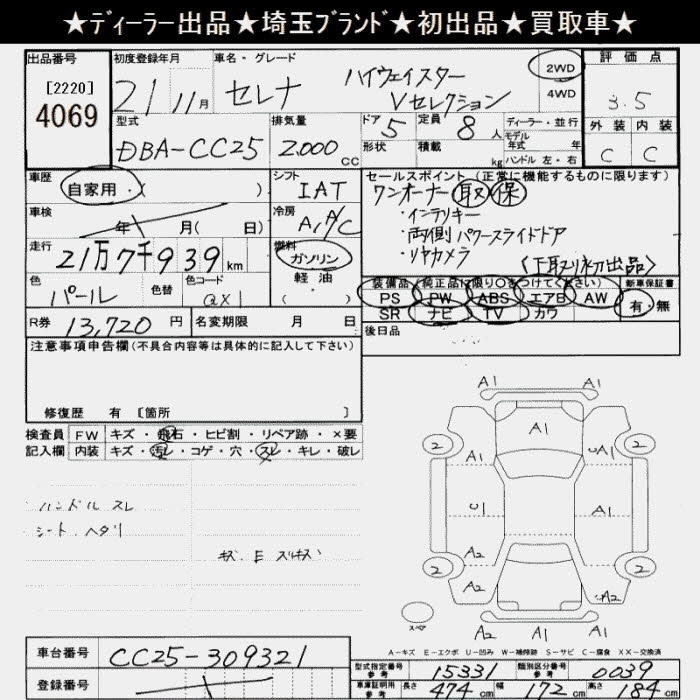 ★ディーラー出品★埼玉ブランド★初出品★買取車★
出品番号 初度登録年月 車名・グレード 評価点
[2220]
4069
21 11月 セレナ ハイウェイスター Vセレクション 2WD 4WD 3.5
型式 排気量 ドア 定員 ディーラー・並行 外装 内装
DBA-CC25 2.000cc 5 8人 モデル年式 年 C C
形状 積載 kg ハンドル 左・右
車歴 シフト セールスポイント(正常に機能するものに限ります)
自家用・( ) IAT ワンオーナー 取 保
車検 冷房 ・インテリキー
年 月(日) A/C ・両側パワースライドドア
走行 燃料 ・リヤカメラ
21万7千939km ガソリン 〈下取り初出品〉
色 色替 色コード 軽油・ 装備品(純正品に限り○をつけてください) 新車保証書
パール QX1 ( ) PS PW ABS エアB AW 有・無
R券 13,720円 名変期限 月 日 SR ナビ TV カワ
注意事項申告欄(不具合内容等は具体的に記入して下さい) 後日品
修復歴 有 [箇所 ]
検査員 FW キズ・飛石・ヒビ割・リペア跡・×要
記入欄 内装 キズ・汚レ・コゲ・穴・スレ・キレ・破レ
A1 A1
A1
2 2
A1 uA1
ハンドルスレ
シート・ヘタリ
U1 A1
A2 A2
2 2
A2 A2
スペア
A2 A1 A1
A-キズ E-エクボ U-凹み W-補修跡 S-サビ C-腐食 XX-交換済
車台番号 CC25-309321
型式指定番号 参考 15331 類別区分番号 参考 0039
登録番号
車庫証明用 参考 長さ 474cm 幅 172cm 高さ 84cm